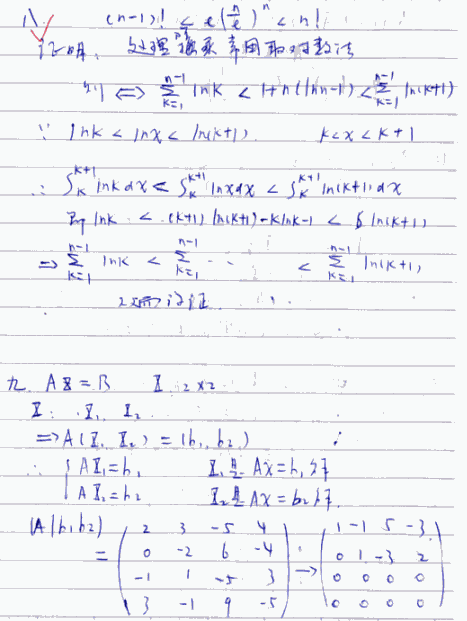 八 (n-1)! < e(n/e)^n < n!
证明. 处理 常用取对数法
⇔ ∑_{k=1}^{n-1} lnk < 1+n(lnn-1) < ∑_{k=1}^{n-1} ln(k+1)
∵ lnk < lnx < ln(k+1). k<x<k+1
∴ ∫_k^{k+1} lnk dx < ∫_k^{k+1} lnx dx < ∫_k^{k+1} ln(k+1) dx
即 lnk < (k+1) ln(k+1) - klnk - 1 < ln(k+1)
⇒ ∑_{k=1}^{n-1} lnk < ∑_{k=1}^{n-1} ·· < ∑_{k=1}^{n-1} ln(k+1)
得证
九. AX = B X 2×2
X: X_1 X_2
⇒ A(X_1 X_2) = (b_1, b_2)
∴ { AX_1 = b_1 X_1是 AX=b_1解
AX_2 = b_2 X_2是AX=b_2解
(A|b_1b_2)
= ( 2 3 -5 4 ) → ( 1 -1 5 -3 )
( 0 -2 6 -4 ) ( 0 1 -3 2 )
( -1 1 -5 3 ) ( 0 0 0 0 )
( 3 -1 9 -5 ) ( 0 0 0 0 )